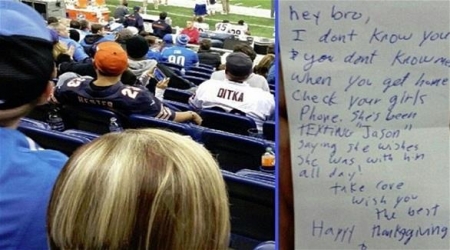 90
HESTER
23
DITKA
hey bro,
I dont know you
& you dont know me
when you get home
check your girls
Phone. She's been
TEXTING "Jason"
saying she wishes
she was with him
all day!
take care
wish you
the best
Happy thanksgiving